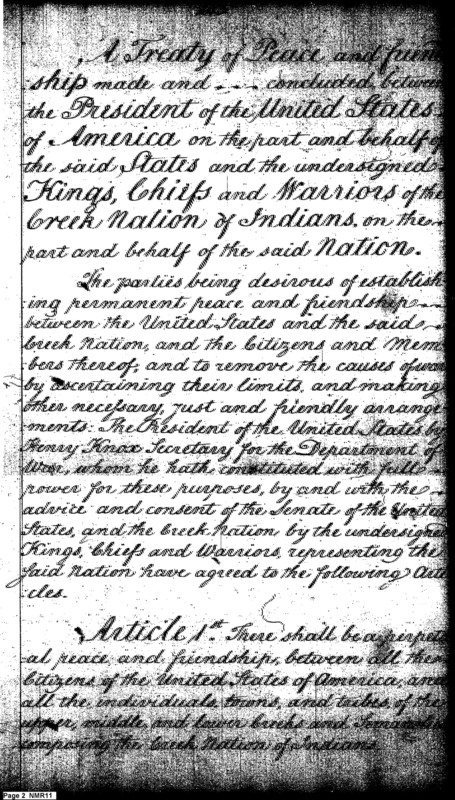 A Treaty of Peace and frien
ship made and - - - concluded betwee
the President of the United States
of America on the part and behalf of
the said States and the undersigned
Kings, Chiefs and Warriors of the
Creek Nation of Indians, on the
part and behalf of the said Nation.
The parties being desirous of establish
:ing permanent peace and friendship
between the United States and the said
Creek Nation, and the Citizens and Mem
:bers thereof; and to remove the causes of war
by ascertaining their limits, and making
other necessary, just and friendly arrange
:ments: The President of the United States by
Henry Knox Secretary for the Department of
War, whom he hath constituted with full
power for these purposes, by and with the
advice and consent of the Senate of the United
States, and the Creek Nation by the undersigned
Kings, Chiefs and Warriors, representing the
said Nation have agreed to the following Arti
:cles.
Article 1st. There shall be a perpetu
:al peace and friendship, between all the
Citizens of the United States of America, and
all the individuals, towns, and tribes, of the
upper, middle, and lower Creeks and
composing the Creek Nation of Indians
Page 2 NMR11